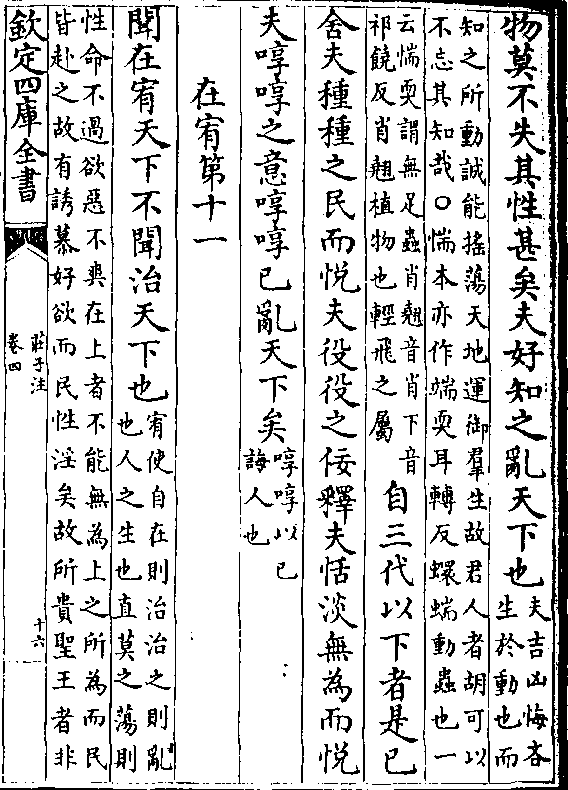 物莫不失其性甚矣夫好知之亂天下也夫吉凶悔吝
生於動也而
知之所動誠能搖蕩天地運御羣生故君人者胡可以
不忘其知哉○惴本亦作端耎耳轉反蠉蝡動蟲也一
云惴耎謂無足蟲肖翹音肖下音
祁饒反肖翹植物也輕飛之屬
自三代以下者是已
舍夫種種之民而悅夫役役之佞釋夫恬淡無為而悅
夫啍啍之意啍啍已亂天下矣啍啍以已
誨人也
在宥第十一
聞在宥天下不聞治天下也宥使自在則治治之則亂
也人之生也直莫之蕩則
性命不過欲惡不爽在上者不能無為上之所為而民
皆赴之故有誘慕好欲而民性淫矣故所貴聖王者非
欽定四庫全書
莊子注
卷四
十六